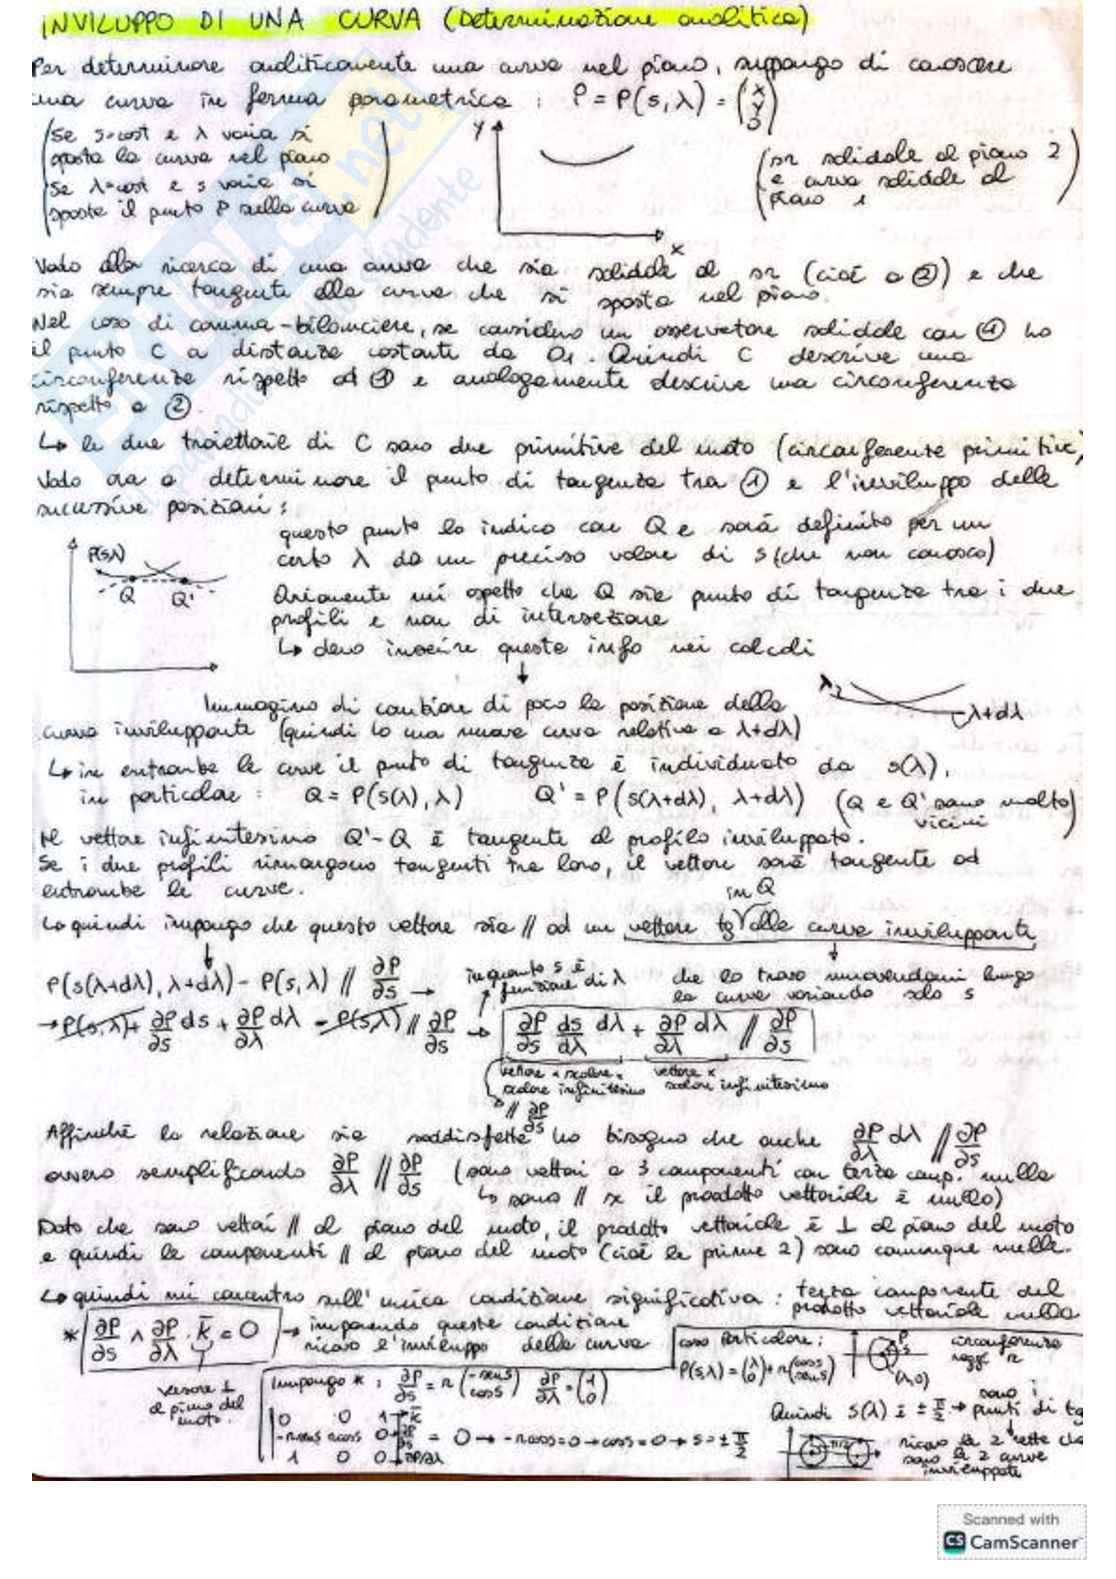 INVILUPPO DI UNA CURVA (Determinazione analitica)
Per determinare analiticamente una curva nel piano, suppongo di conoscere
una curva in forma parametrica : P = P(s,λ) = (x y 0)
(Se s=cost e λ varia si
sposta la curva nel piano
Se λ=cost e s varia si
sposta il punto P sulla curva)
y
x
(sr solidale al piano 2
e curva solidale al
piano 1)
Vado alla ricerca di una curva che sia solidale al sr (cioè a ②) e che
sia sempre tangente alla curva che si sposta nel piano.
Nel caso di camma-bilanciere, se considero un osservatore solidale con ① ho
il punto C a distanza costante da O1. Quindi C descrive una
circonferenza rispetto ad ① e analogamente descrive una circonferenza
rispetto a ②.
↳ le due traiettorie di C sono due primitive del moto (circonferenze primitive)
Vado ora a determinare il punto di tangenza tra ① e l'inviluppo delle
successive posizioni:
questo punto lo indico con Q e sarà definito per un
certo λ da un preciso valore di s (che non conosco)
P(s,λ)
Q Q'
Ovviamente mi aspetto che Q sia punto di tangenza tra i due
profili e non di intersezione
↳ devo inserire questa info nei calcoli
Immagino di cambiare di poco la posizione della
curva inviluppante (quindi ho una nuova curva relativa a λ+dλ)
λ
λ+dλ
↳ in entrambe le curve il punto di tangenza è individuato da s(λ),
in particolare : Q = P(s(λ),λ) Q' = P(s(λ+dλ), λ+dλ) (Q e Q' sono molto
vicini)
Il vettore infinitesimo Q'-Q è tangente al profilo inviluppato.
Se i due profili rimangono tangenti tra loro, il vettore sarà tangente ad
entrambe le curve.
↳ quindi impongo che questo vettore sia // ad un vettore tg in Q alla curva inviluppante
P(s(λ+dλ), λ+dλ) - P(s,λ) // ∂P/∂s →
in quanto s è
funzione di λ
che la trovo muovendomi lungo
la curva variando solo s
→ P(s,λ) + ∂P/∂s ds + ∂P/∂λ dλ - P(s,λ) // ∂P/∂s → ∂P/∂s ds/dλ dλ + ∂P/∂λ dλ // ∂P/∂s
vettore x scalare x
scalare infinitesimo
vettore x
scalare infinitesimo
// ∂P/∂s
Affinché la relazione sia soddisfatta ho bisogno che anche ∂P/∂λ dλ // ∂P/∂s
ovvero semplificando ∂P/∂λ // ∂P/∂s (sono vettori a 3 componenti con terza comp. nulla
↳ sono // se il prodotto vettoriale è nullo)
Dato che sono vettori // al piano del moto, il prodotto vettoriale è ⊥ al piano del moto
e quindi le componenti // al piano del moto (cioè le prime 2) sono comunque nulle.
↳ quindi mi concentro sull'unica condizione significativa : terza componente del
prodotto vettoriale nulla
* ∂P/∂s ∧ ∂P/∂λ · k̄ = 0 → imponendo queste condizione
ricavo l'inviluppo della curva
versore ⊥
al piano del
moto.
caso particolare:
P(s,λ) = (λ 0) + r(cos s sen s)
P
s
(λ,0)
circonferenza
raggio r
Impongo * : ∂P/∂s = r(-sen s cos s) ∂P/∂λ = (1 0)
0 0 1 → k̄
-r sen s r cos s 0 → ∂P/∂s = 0 → -r cos s = 0 → cos s = 0 → s = ± π/2
1 0 0 → ∂P/∂λ
Quindi s(λ) è ± π/2 → sono i
punti di tg
π/2
ricavo le 2 rette che
sono le 2 curve
inviluppate
Scanned with
CS CamScanner